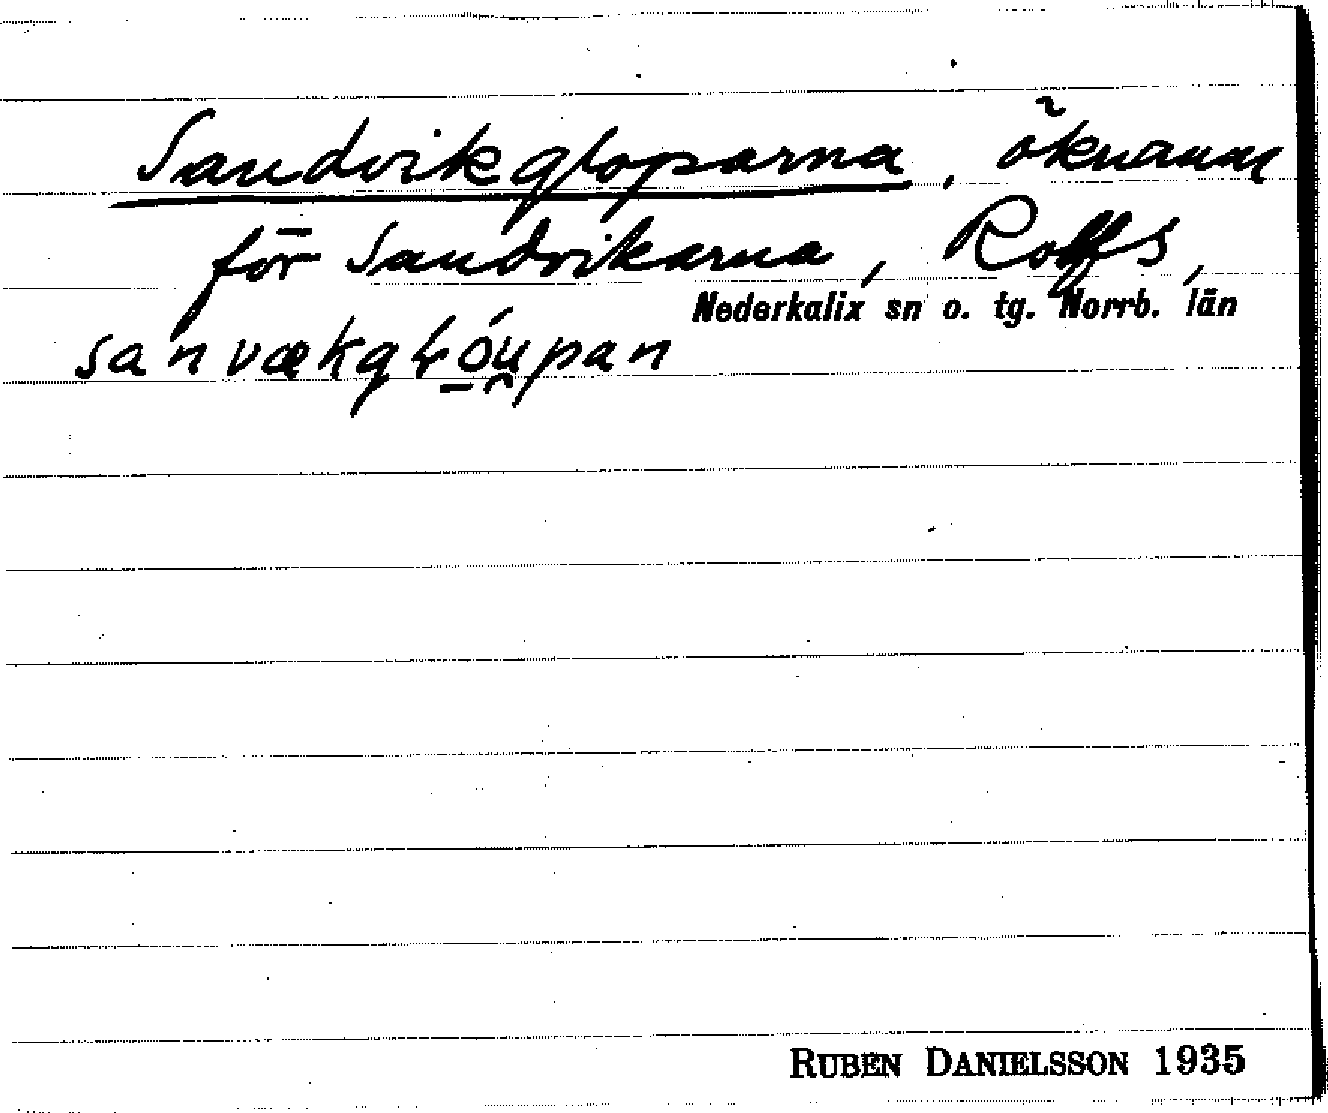 Sandvikgloparna, öknamn
för Sandvikarna, Rolfs,
Nederkalix sn o. tg. Norrb. län
sanvækgłóu̯pan
RUBEN DANIELSSON 1935